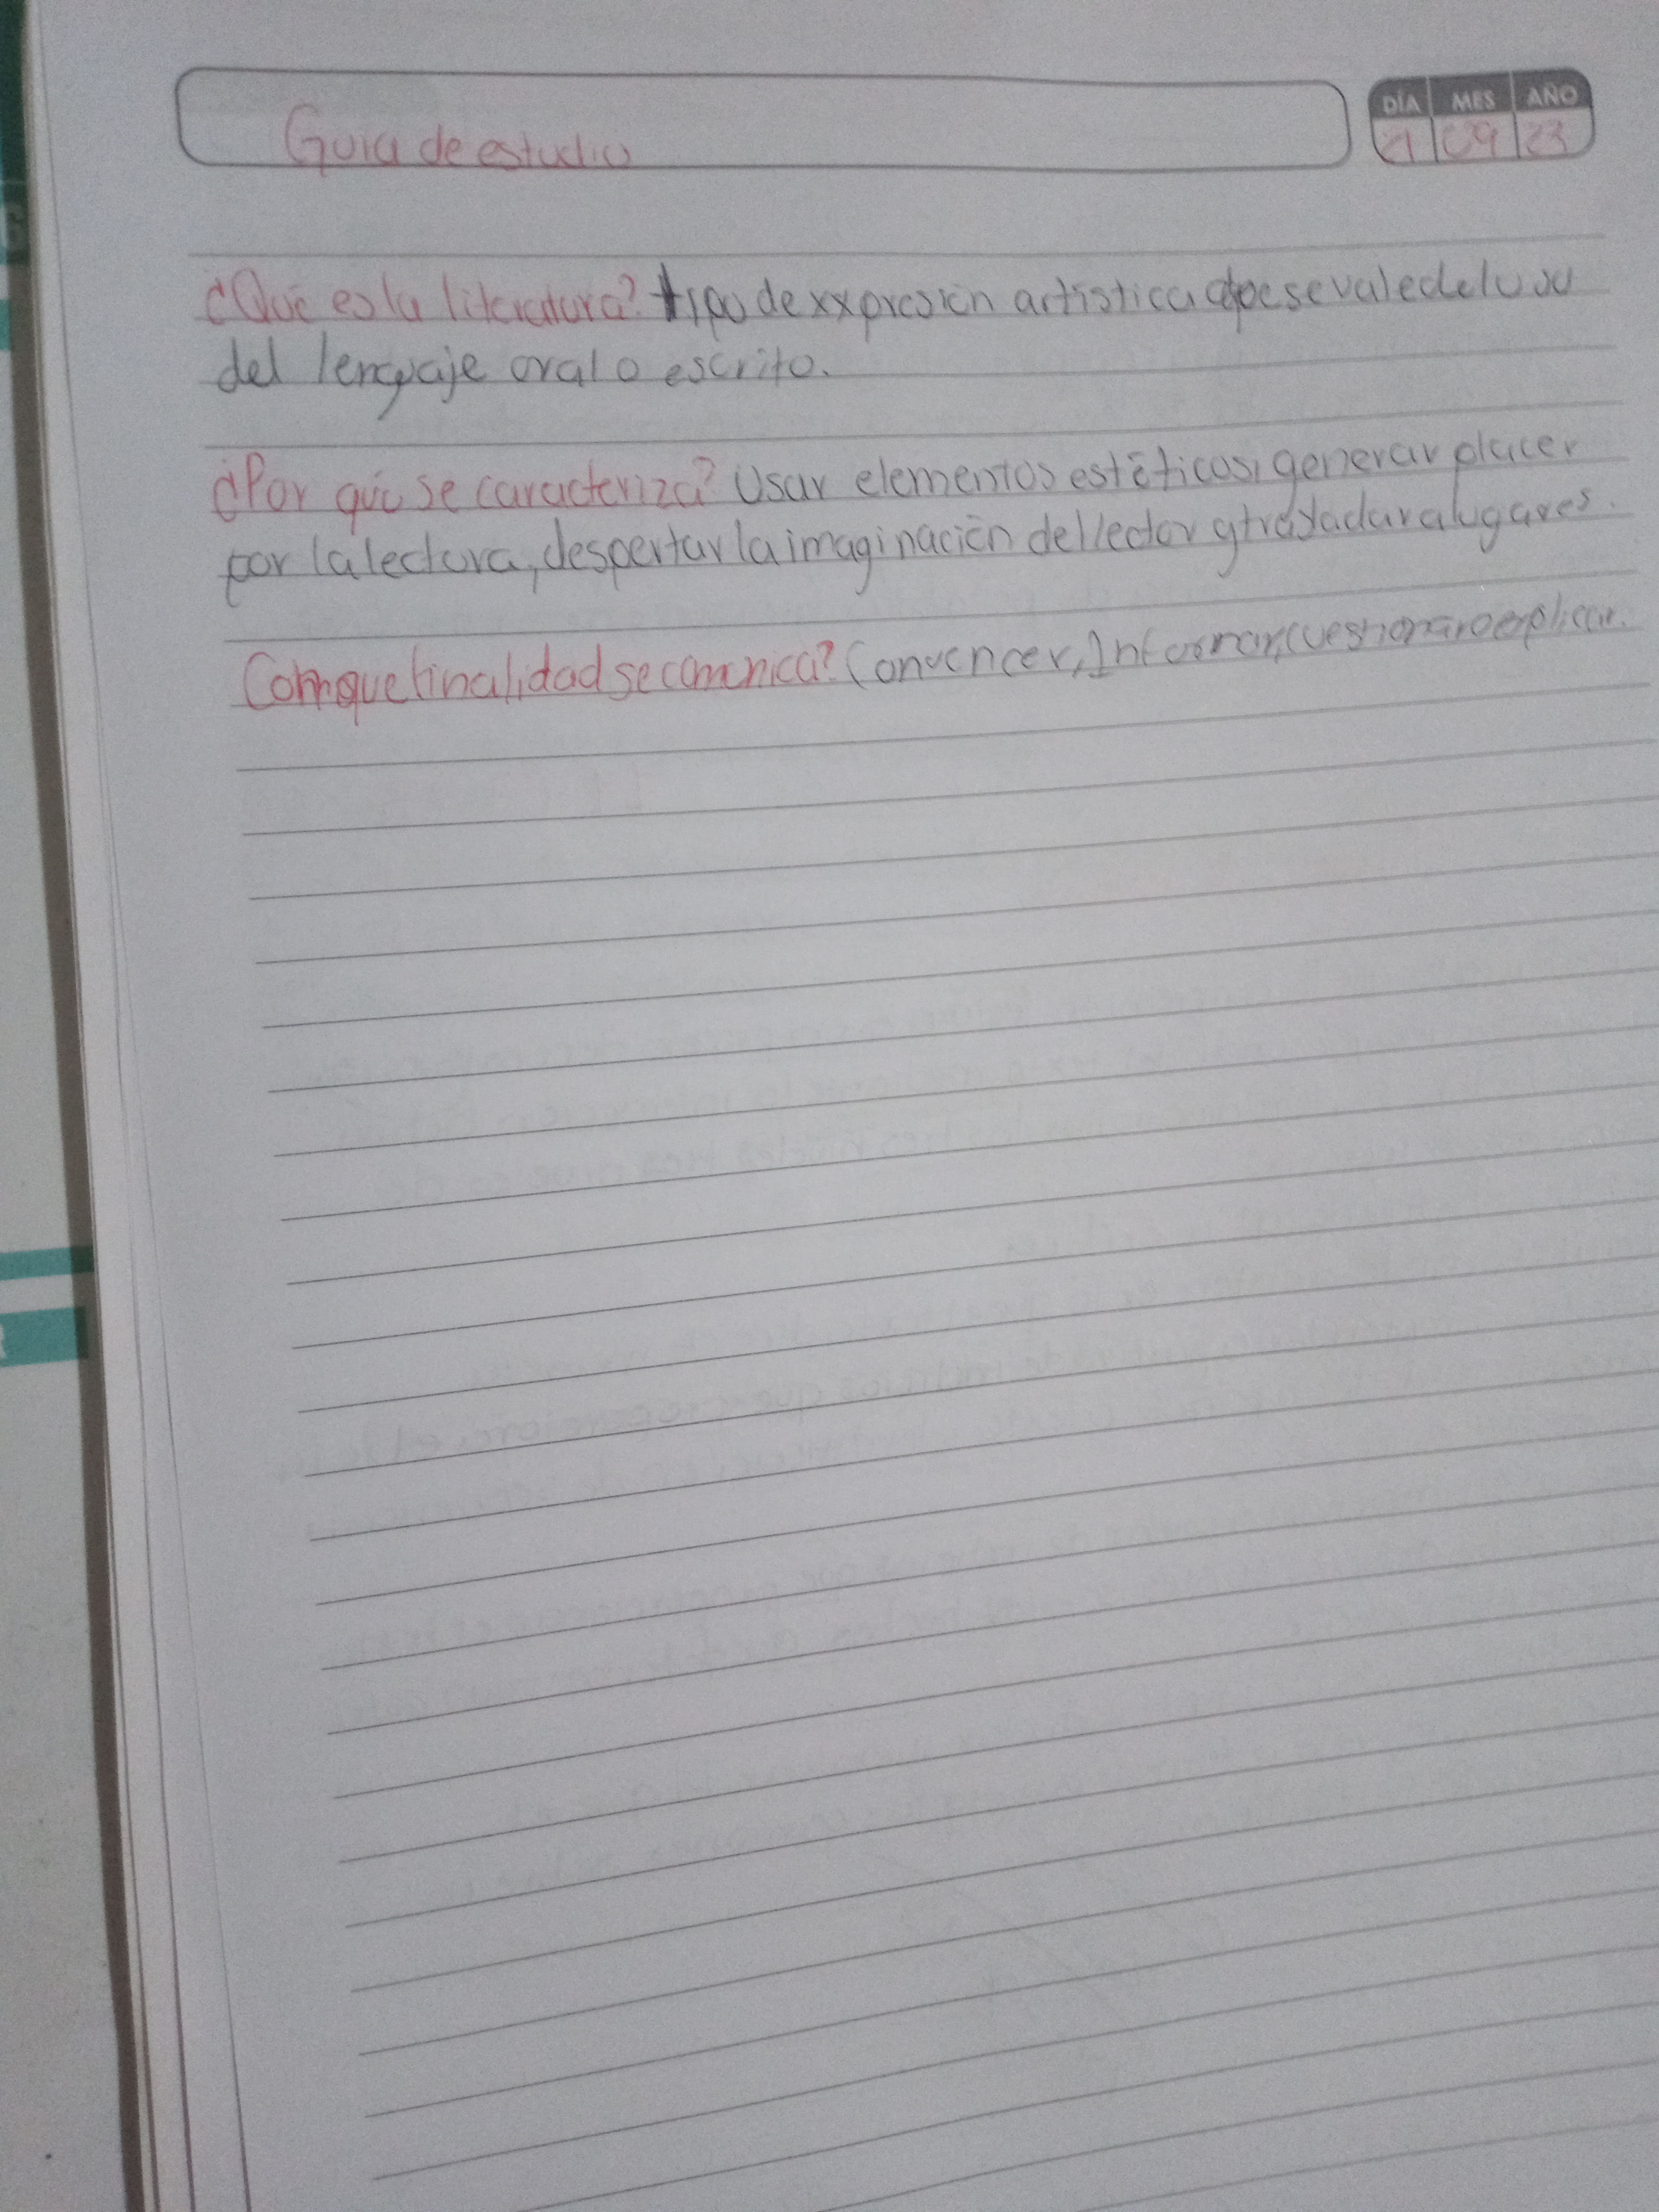 Guia de estudio
DÍA MES AÑO
21 09 23
¿Qué es la literatura? tipo de expresión artística que se vale del uso
del lenguaje oral o escrito.
¿Por qué se caracteriza? Usar elementos estéticos, generar placer
por la lectura, despertar la imaginación del lector y trasladar a lugares.
Con que finalidad se comunica? Convencer, Informar, cuestionar o explicar.